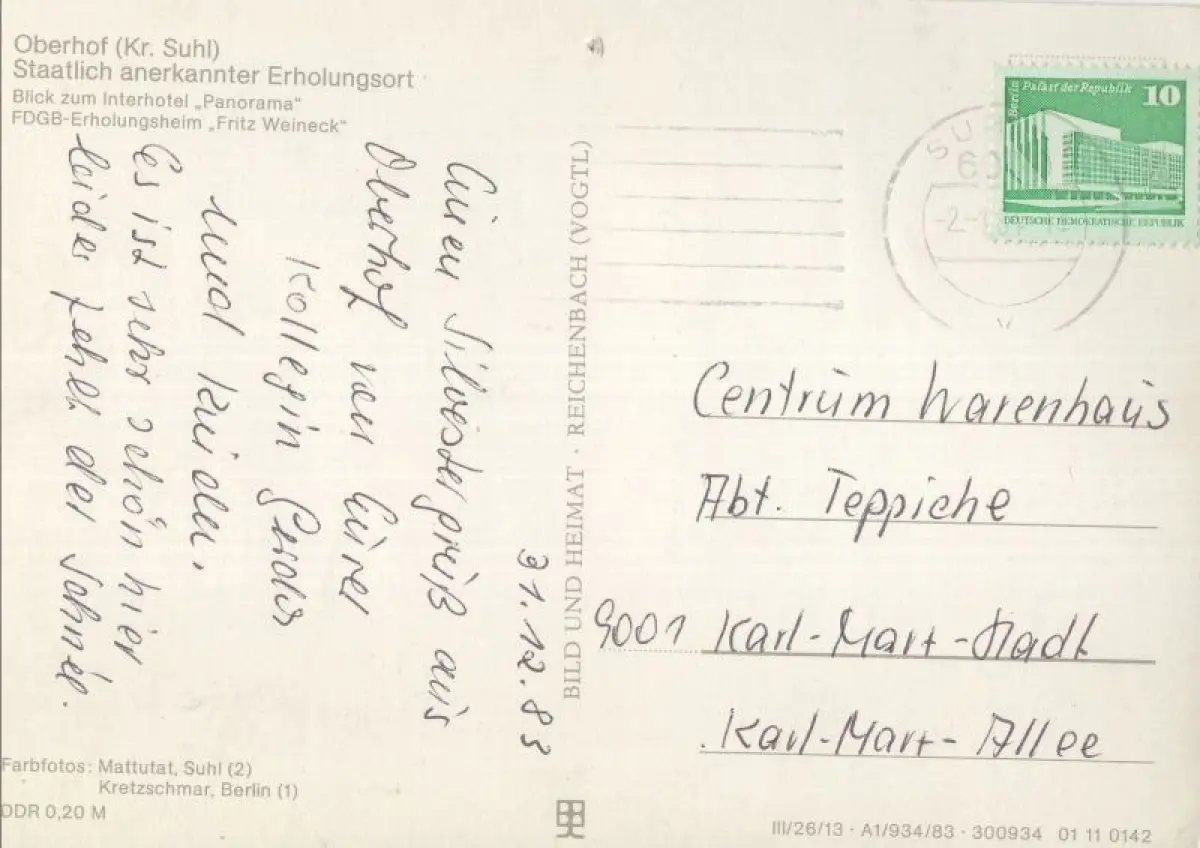 Oberhof (Kr. Suhl)
Staatlich anerkannter Erholungsort
Blick zum Interhotel „Panorama“
FDGB-Erholungsheim „Fritz Weineck“
31.12.83
Einen Silvestergruß aus
Oberhof von Eurer
Kollegin
und Kinder.
Es ist sehr schön hier
leider fehlt der Schnee.
Farbfotos: Mattutat, Suhl (2)
Kretzschmar, Berlin (1)
DDR 0,20 M
BILD UND HEIMAT · REICHENBACH (VOGTL)
Berlin Palast der Republik 10
DEUTSCHE DEMOKRATISCHE REPUBLIK
SU
60
-2.-
Centrum Warenhaus
Abt. Teppiche
9001 Karl-Marx-Stadt
Karl-Marx-Allee
III/26/13 · A1/934/83 · 300934 01 11 0142